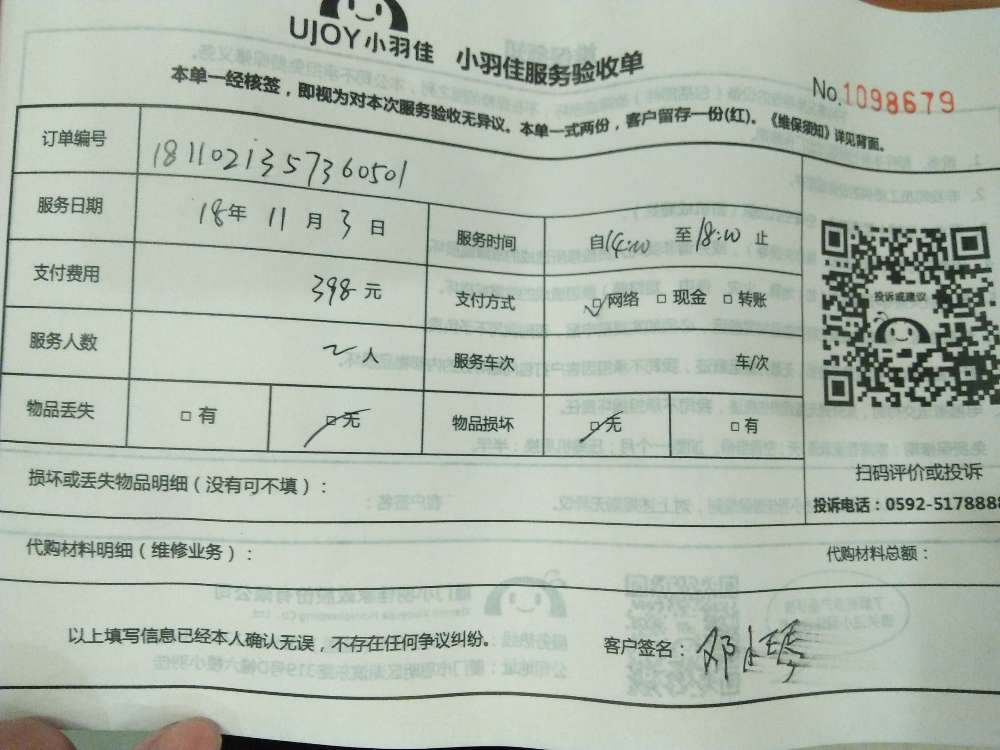 UJOY小羽佳 小羽佳服务验收单
No.1098679
本单一经核签，即视为对本次服务验收无异议。本单一式两份，客户留存一份(红)。《维保须知》详见背面。
订单编号 1811021357360501
服务日期 18年 11月 3日 服务时间 自14:00 至18:00 止
支付费用 398元 支付方式 □网络 □现金 □转账
服务人数 2人 服务车次 车/次
物品丢失 □有 □无 物品损坏 □无 □有
投诉或建议
扫码评价或投诉
损坏或丢失物品明细（没有可不填）：
投诉电话：0592-5178888
代购材料明细（维修业务）： 代购材料总额：
以上填写信息已经本人确认无误，不存在任何争议纠纷。 客户签名：